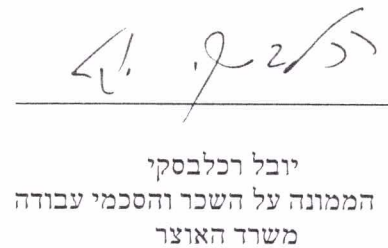 יובל רכלבסקי
הממונה על השכר והסכמי עבודה
משרד האוצר